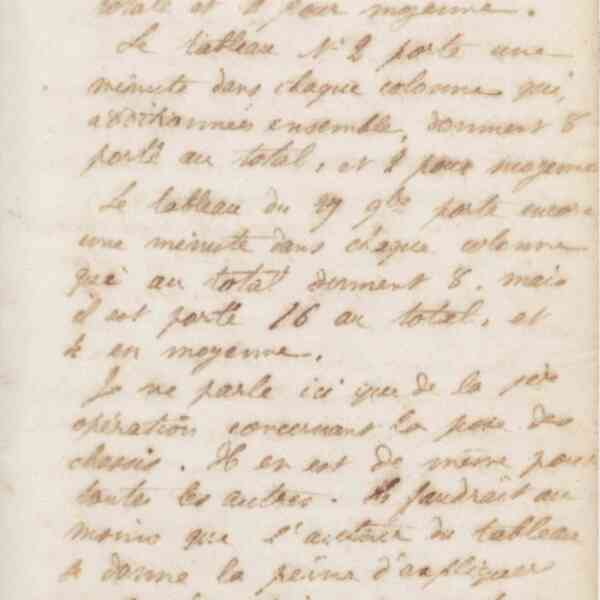 totale et 2 pour moyenne.
Le tableau N° 2 porte une
minute dans chaque colonne qui,
additionnées ensemble, donnent 8
porté au total, et 2 pour moyenne
Le tableau du 27 9bre porte encore
une minute dans chaque colonne
qui au total donnent 8. mais
il est porté 16 au total, et
4 en moyenne.
Je ne parle ici que de la 1ère
opération concernant la pose des
chassis. Il en est de même pour
toutes les autres. Il faudrait au
moins que l'auteur du tableau
se donne la peine d'expliquer